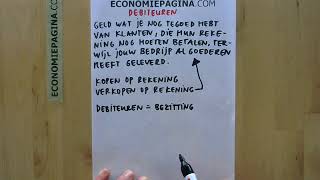 ECONOMIEPAGINA.COM
DEBITEUREN
GELD WAT JE NOG TEGOED HEBT
VAN KLANTEN, DIE HUN REKE-
NING NOG MOETEN BETALEN, TER-
WIJL JOUW BEDRIJF AL GOEDEREN
HEEFT GELEVERD.
KOPEN OP REKENING
VERKOPEN OP REKENING
DEBITEUREN = BEZITTING
ECONOMIEPAGINA.COM